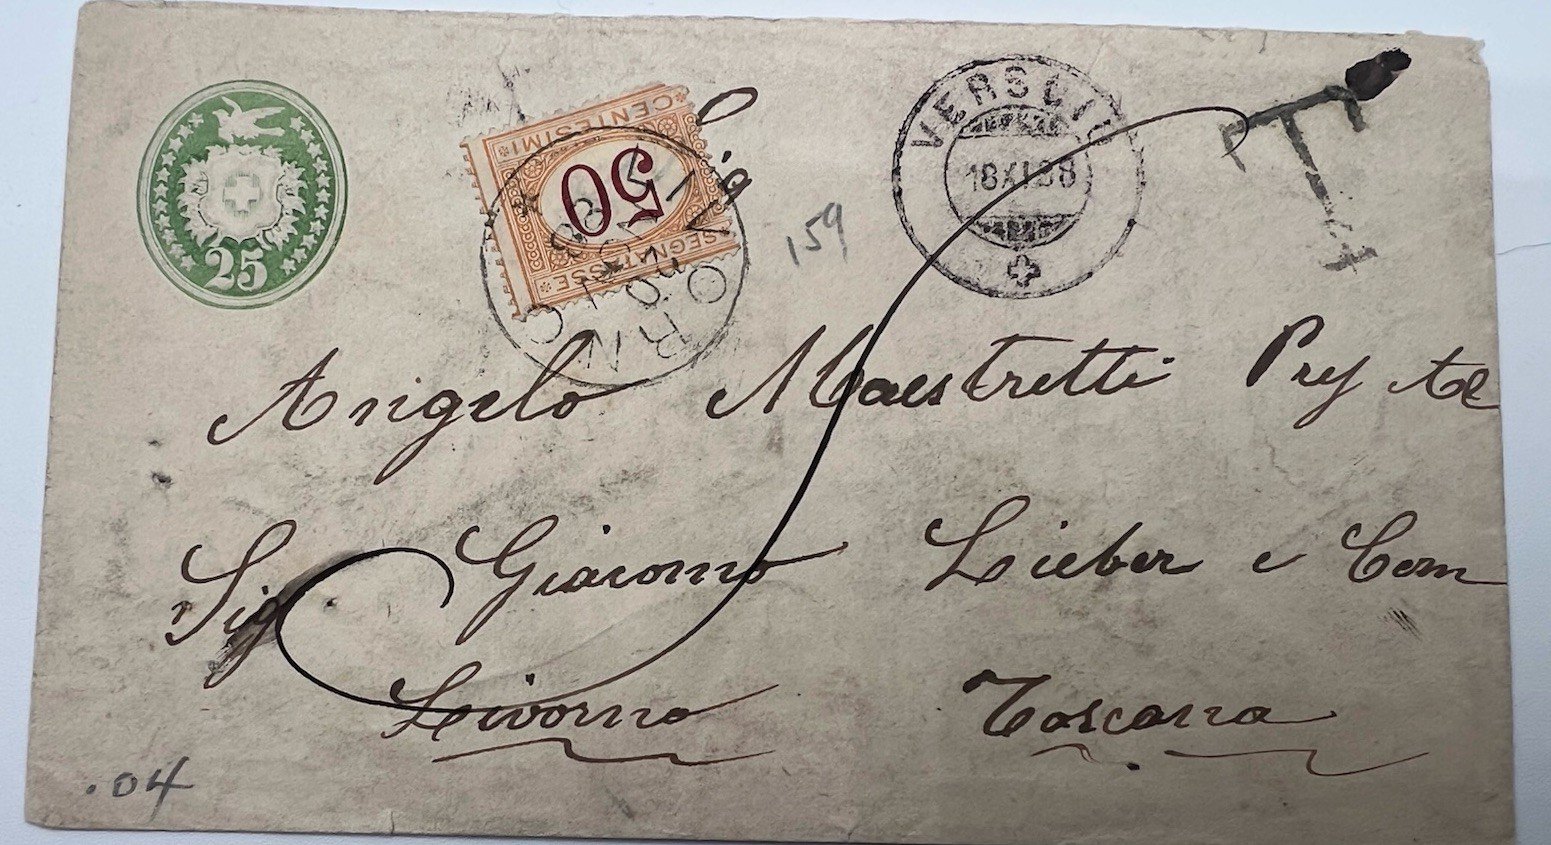 25
50
CENTESIMI
SEGNATASSE
LIVORNO
VERSCIO
18 XI. 88
T
159
Angelo Maestretti
Sig Giacomo Lieber e Com
Livorno Toscana
.04